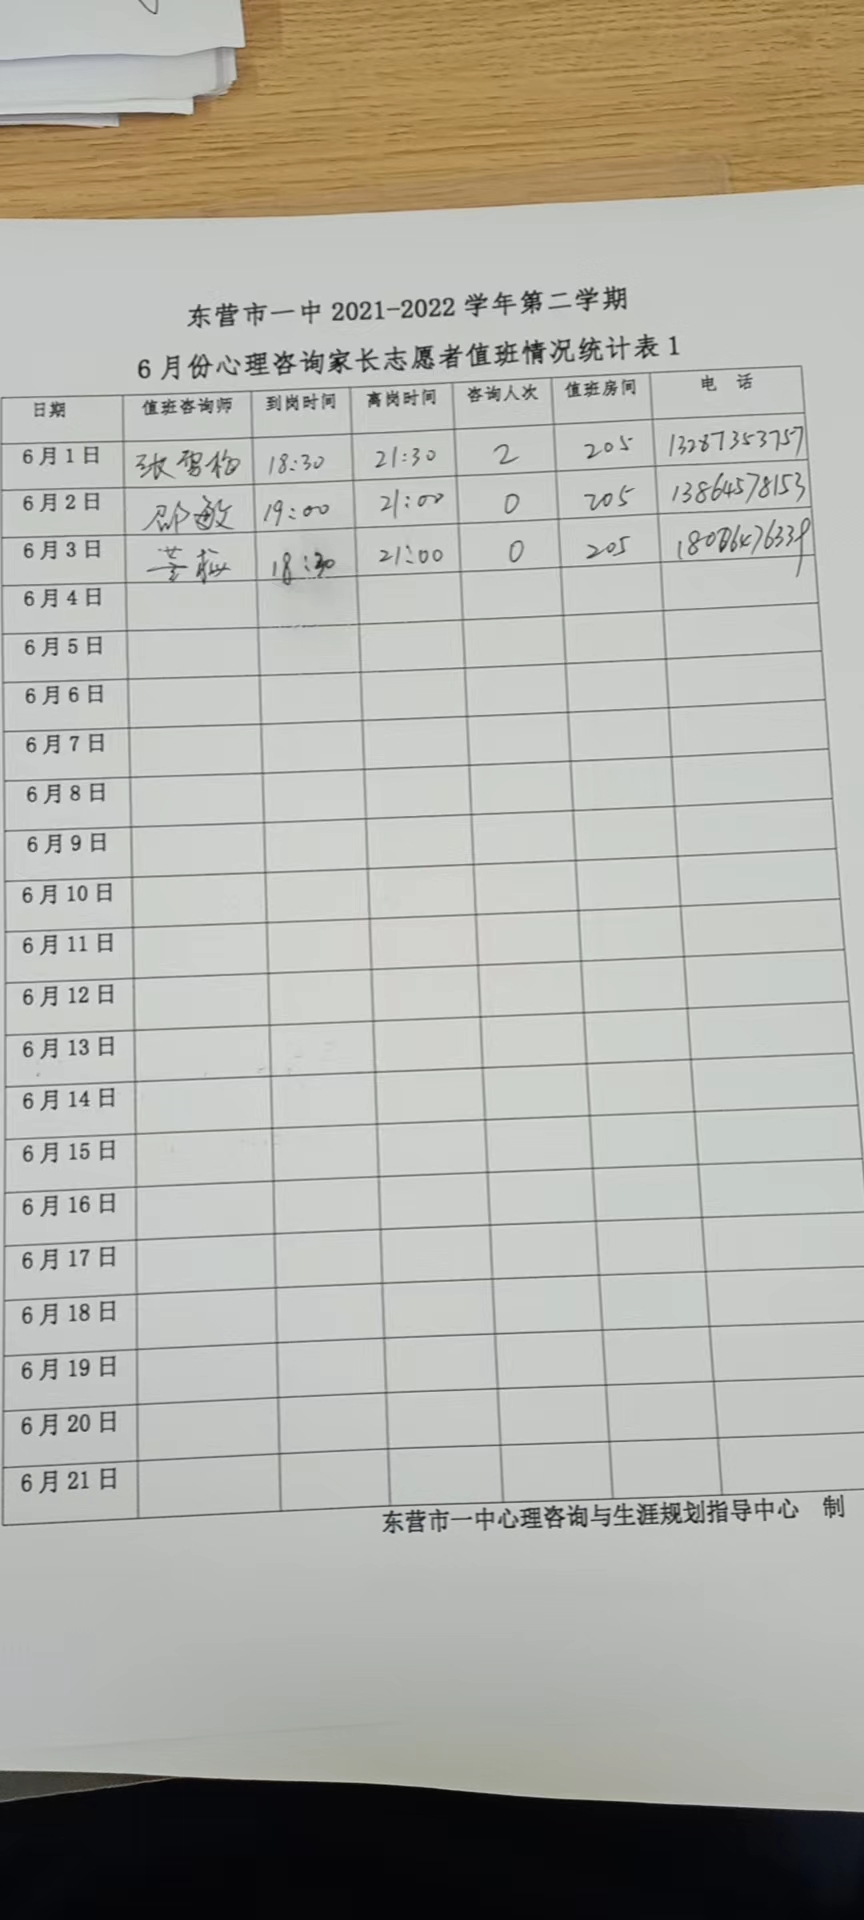 东营市一中 2021-2022 学年第二学期
6 月份心理咨询家长志愿者值班情况统计表 1
日期 值班咨询师 到岗时间 离岗时间 咨询人次 值班房间 电 话
6 月 1 日 张雪梅 18:30 21:30 2 205 13287353757
6 月 2 日 邵敏 19:00 21:00 0 205 13864578153
6 月 3 日 18:30 21:00 0 205
6 月 4 日
6 月 5 日
6 月 6 日
6 月 7 日
6 月 8 日
6 月 9 日
6 月 10 日
6 月 11 日
6 月 12 日
6 月 13 日
6 月 14 日
6 月 15 日
6 月 16 日
6 月 17 日
6 月 18 日
6 月 19 日
6 月 20 日
6 月 21 日
东营市一中心理咨询与生涯规划指导中心 制